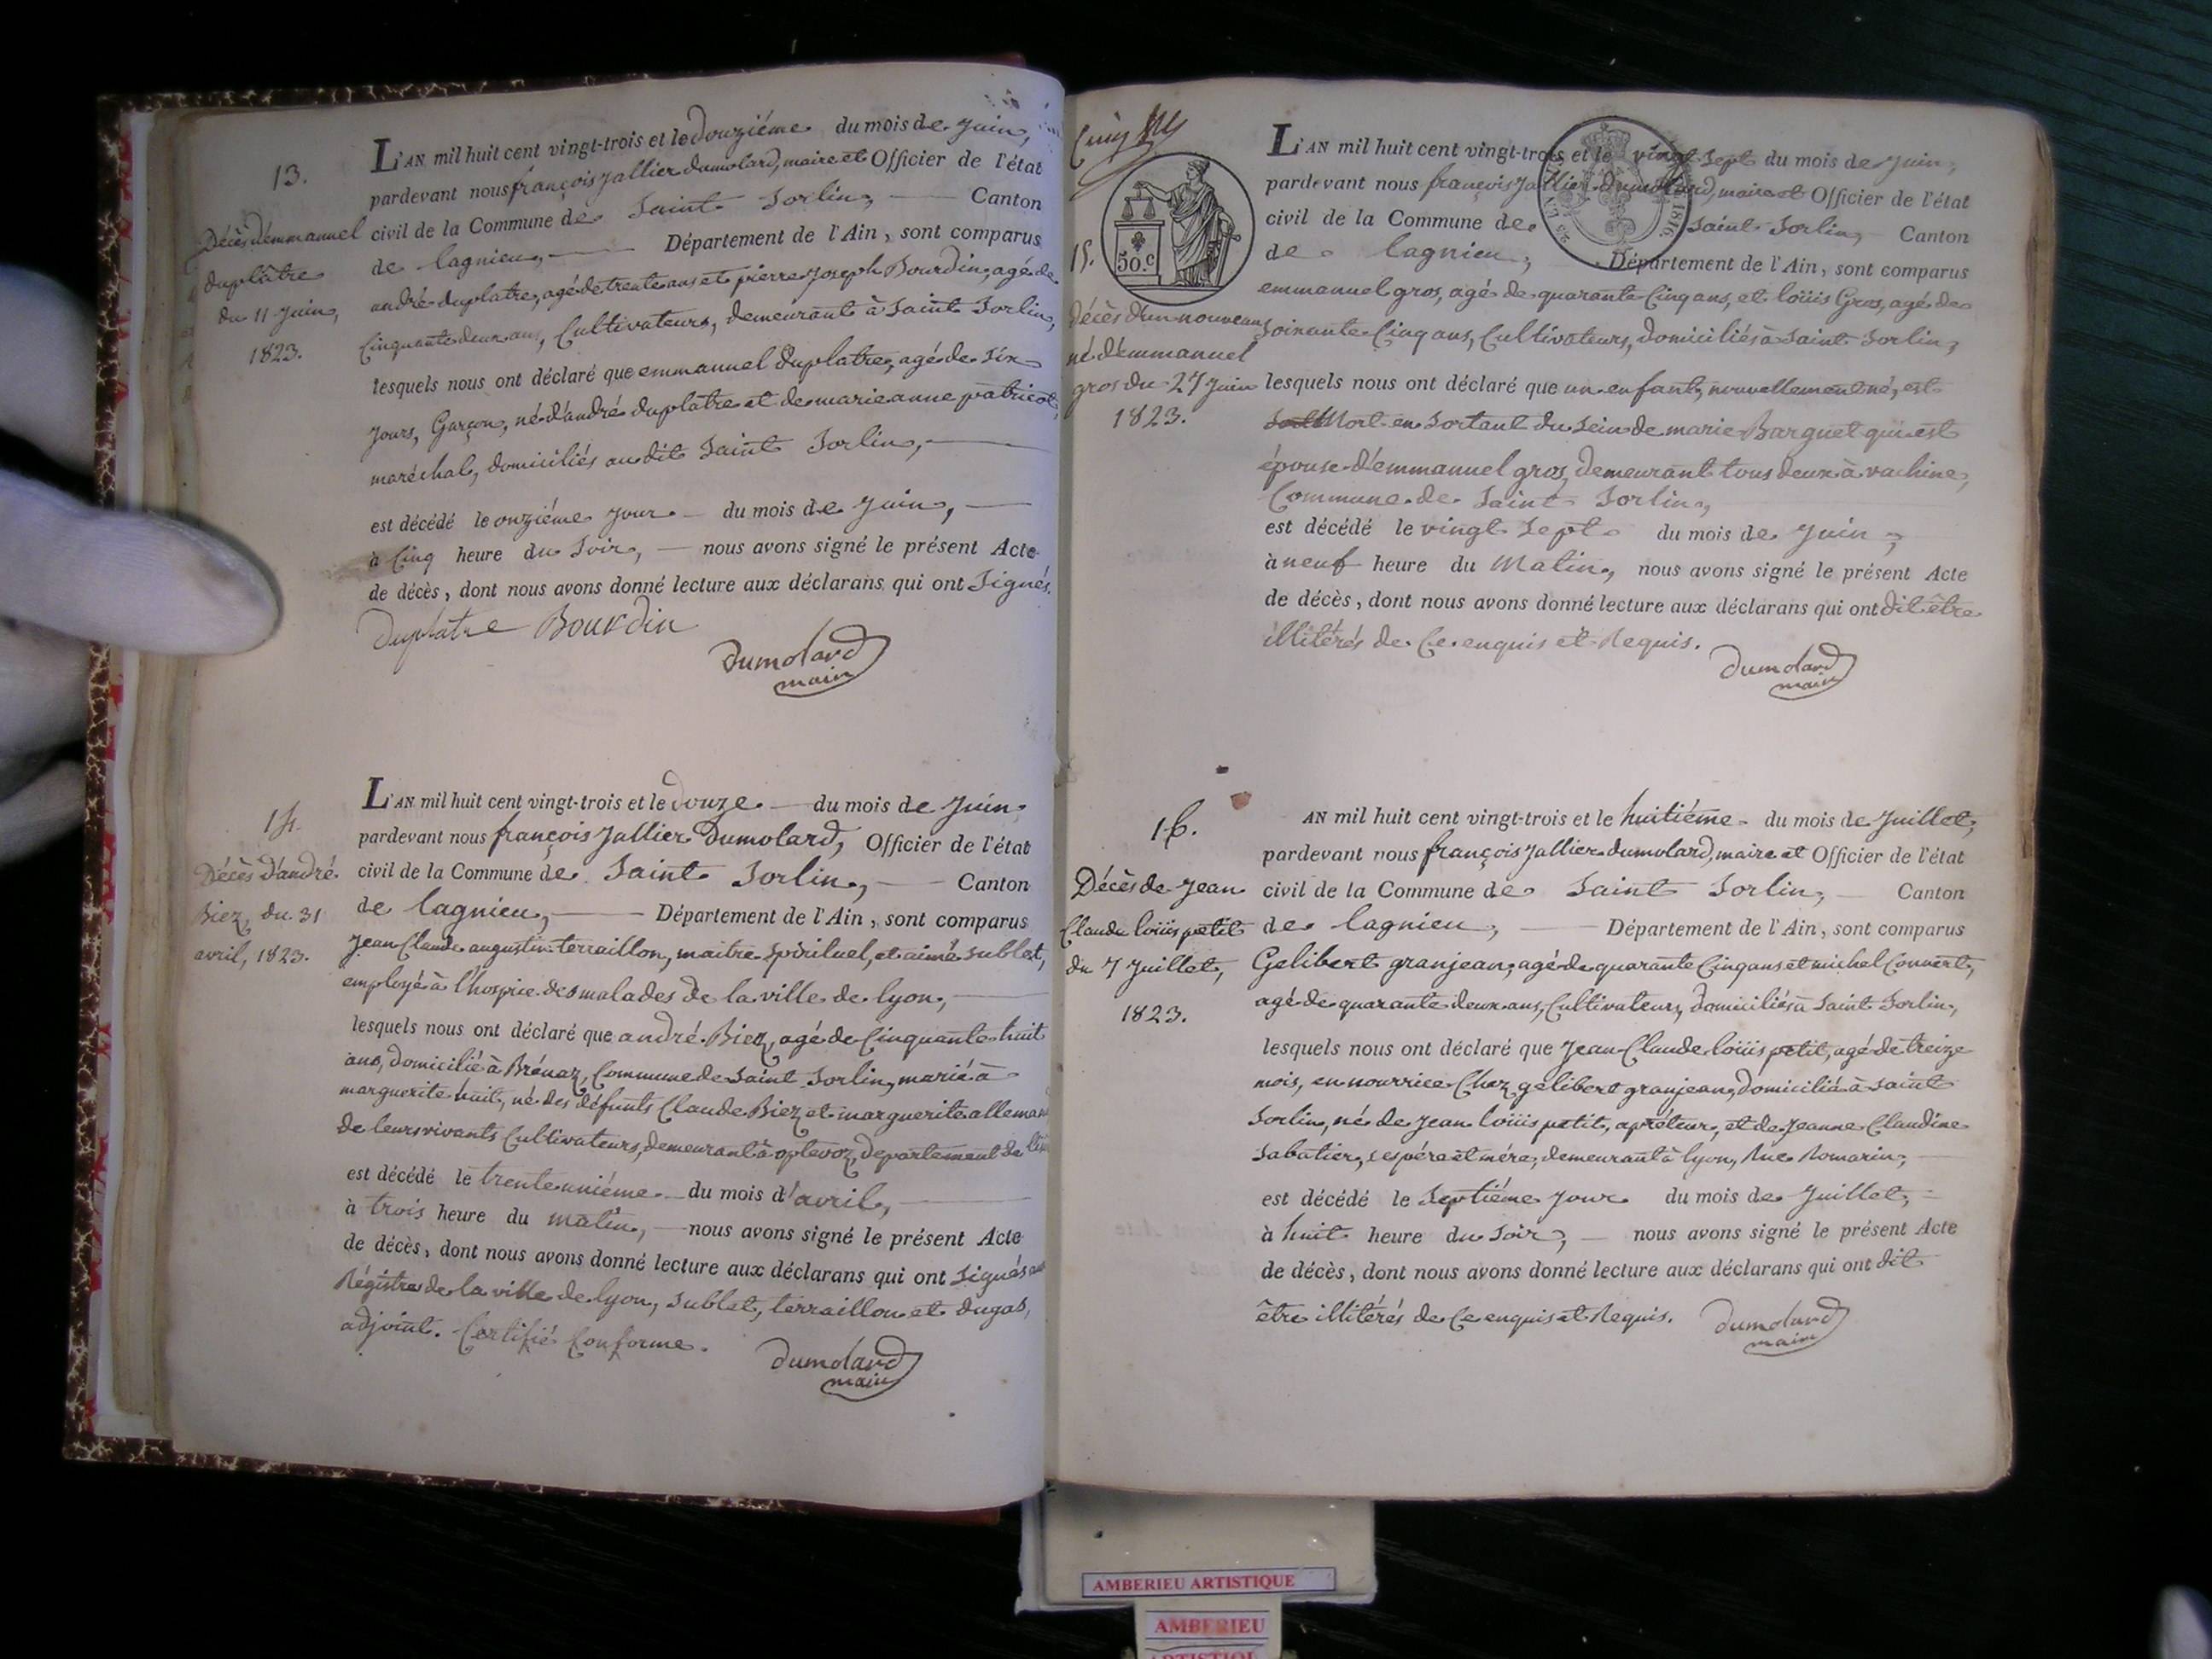 13.
Décès d'emmanuel
duplâtre
du 11 Juin,
1823.
L'AN mil huit cent vingt-trois et le douziéme du mois de Juin,
pardevant nous françois Jallier dumolard, maire et Officier de l'état
civil de la Commune de Saint Sorlin, Canton
de lagnieu, Département de l'Ain, sont comparus
andré duplatre, agé de trente ans et pierre Joseph Bourdin, agé de
Cinquante deux ans, Cultivateurs, demeurant à Saint Sorlin,
lesquels nous ont déclaré que emmanuel duplatre, agé de six
Jours, Garçon, né d'andré duplatre et de marie anne patricot,
maréchal, domiciliés au dit Saint Sorlin,
est décédé le onziéme Jour du mois de Juin,
à Cinq heure du Soir, nous avons signé le présent Acte
de décès, dont nous avons donné lecture aux déclarans qui ont Signés.
Duplatre Bourdin
dumolard
maire
14.
Décès d'andré
Biez, du 31
avril, 1823.
L'AN mil huit cent vingt-trois et le douze du mois de Juin
pardevant nous françois Jallier Dumolard, Officier de l'état
civil de la Commune de Saint Sorlin, Canton
de lagnieu, Département de l'Ain, sont comparus
Jean Claude augustin terraillon, maitre spirituel, et aimé sublet,
employé à l'hospice des malades de la ville de lyon,
lesquels nous ont déclaré que andré Biez, agé de Cinquante huit
ans, domicilié à Brénaz, Commune de Saint Sorlin, marié à
marguerite huit, né des défunts Claude Biez et marguerite alleman
de leurs vivants Cultivateurs, demeurant à optevoz, departement de
est décédé le trente uniéme du mois d'avril,
à trois heure du matin, nous avons signé le présent Acte
de décès, dont nous avons donné lecture aux déclarans qui ont Signés au
Régistre de la ville de lyon, sublet, terraillon et dugas,
adjoint. Certifié Conforme.
dumolard
maire
50.c
1816.
15.
Décès d'un nouveau
né d'emmanuel
gros du 27 Juin
1823.
L'AN mil huit cent vingt-trois et le vingt Sept du mois de Juin,
pardevant nous françois Jallier Dumolard, maire et Officier de l'état
civil de la Commune de Saint Sorlin, Canton
de lagnieu, Département de l'Ain, sont comparus
emmanuel gros, agé de quarante Cinq ans, et loüis Gros, agé de
Soixante Cinq ans, Cultivateurs, domiciliés à Saint Sorlin,
lesquels nous ont déclaré que un enfant, nouvellement né, est
Mort en Sortant du Sein de marie Barguet qui est
épouse d'emmanuel gros, demeurant tous deux à vachine,
Commune de Saint Sorlin,
est décédé le vingt Sept du mois de Juin,
à neuf heure du Matin, nous avons signé le présent Acte
de décès, dont nous avons donné lecture aux déclarans qui ont dit être
illitérés de Ce enquis et Requis.
dumolard
maire
16.
Décès de Jean
Claude loüis petit
du 7 Juillet,
1823.
AN mil huit cent vingt-trois et le huitiéme du mois de Juillet,
pardevant nous françois Jallier dumolard, maire et Officier de l'état
civil de la Commune de Saint Sorlin, Canton
de lagnieu, Département de l'Ain, sont comparus
Gelibert granjean, agé de quarante Cinq ans et michel Convert,
agé de quarante deux ans, Cultivateurs, domiciliés à Saint Sorlin,
lesquels nous ont déclaré que Jean Claude loüis petit, agé de treize
mois, en nourrice Chez gelibert granjean, domicilié à saint
Sorlin, né de Jean loüis petit, apréteur, et de Jeanne Claudine
Sabatier, ses pére et mére, demeurant à lyon, Rue Romarin,
est décédé le Septiéme Jour du mois de Juillet,
à huit heure du Soir, nous avons signé le présent Acte
de décès, dont nous avons donné lecture aux déclarans qui ont dit
être illitérés de Ce enquis et Requis.
dumolard
maire
AMBERIEU ARTISTIQUE
AMBERIEU
ARTISTIQUE